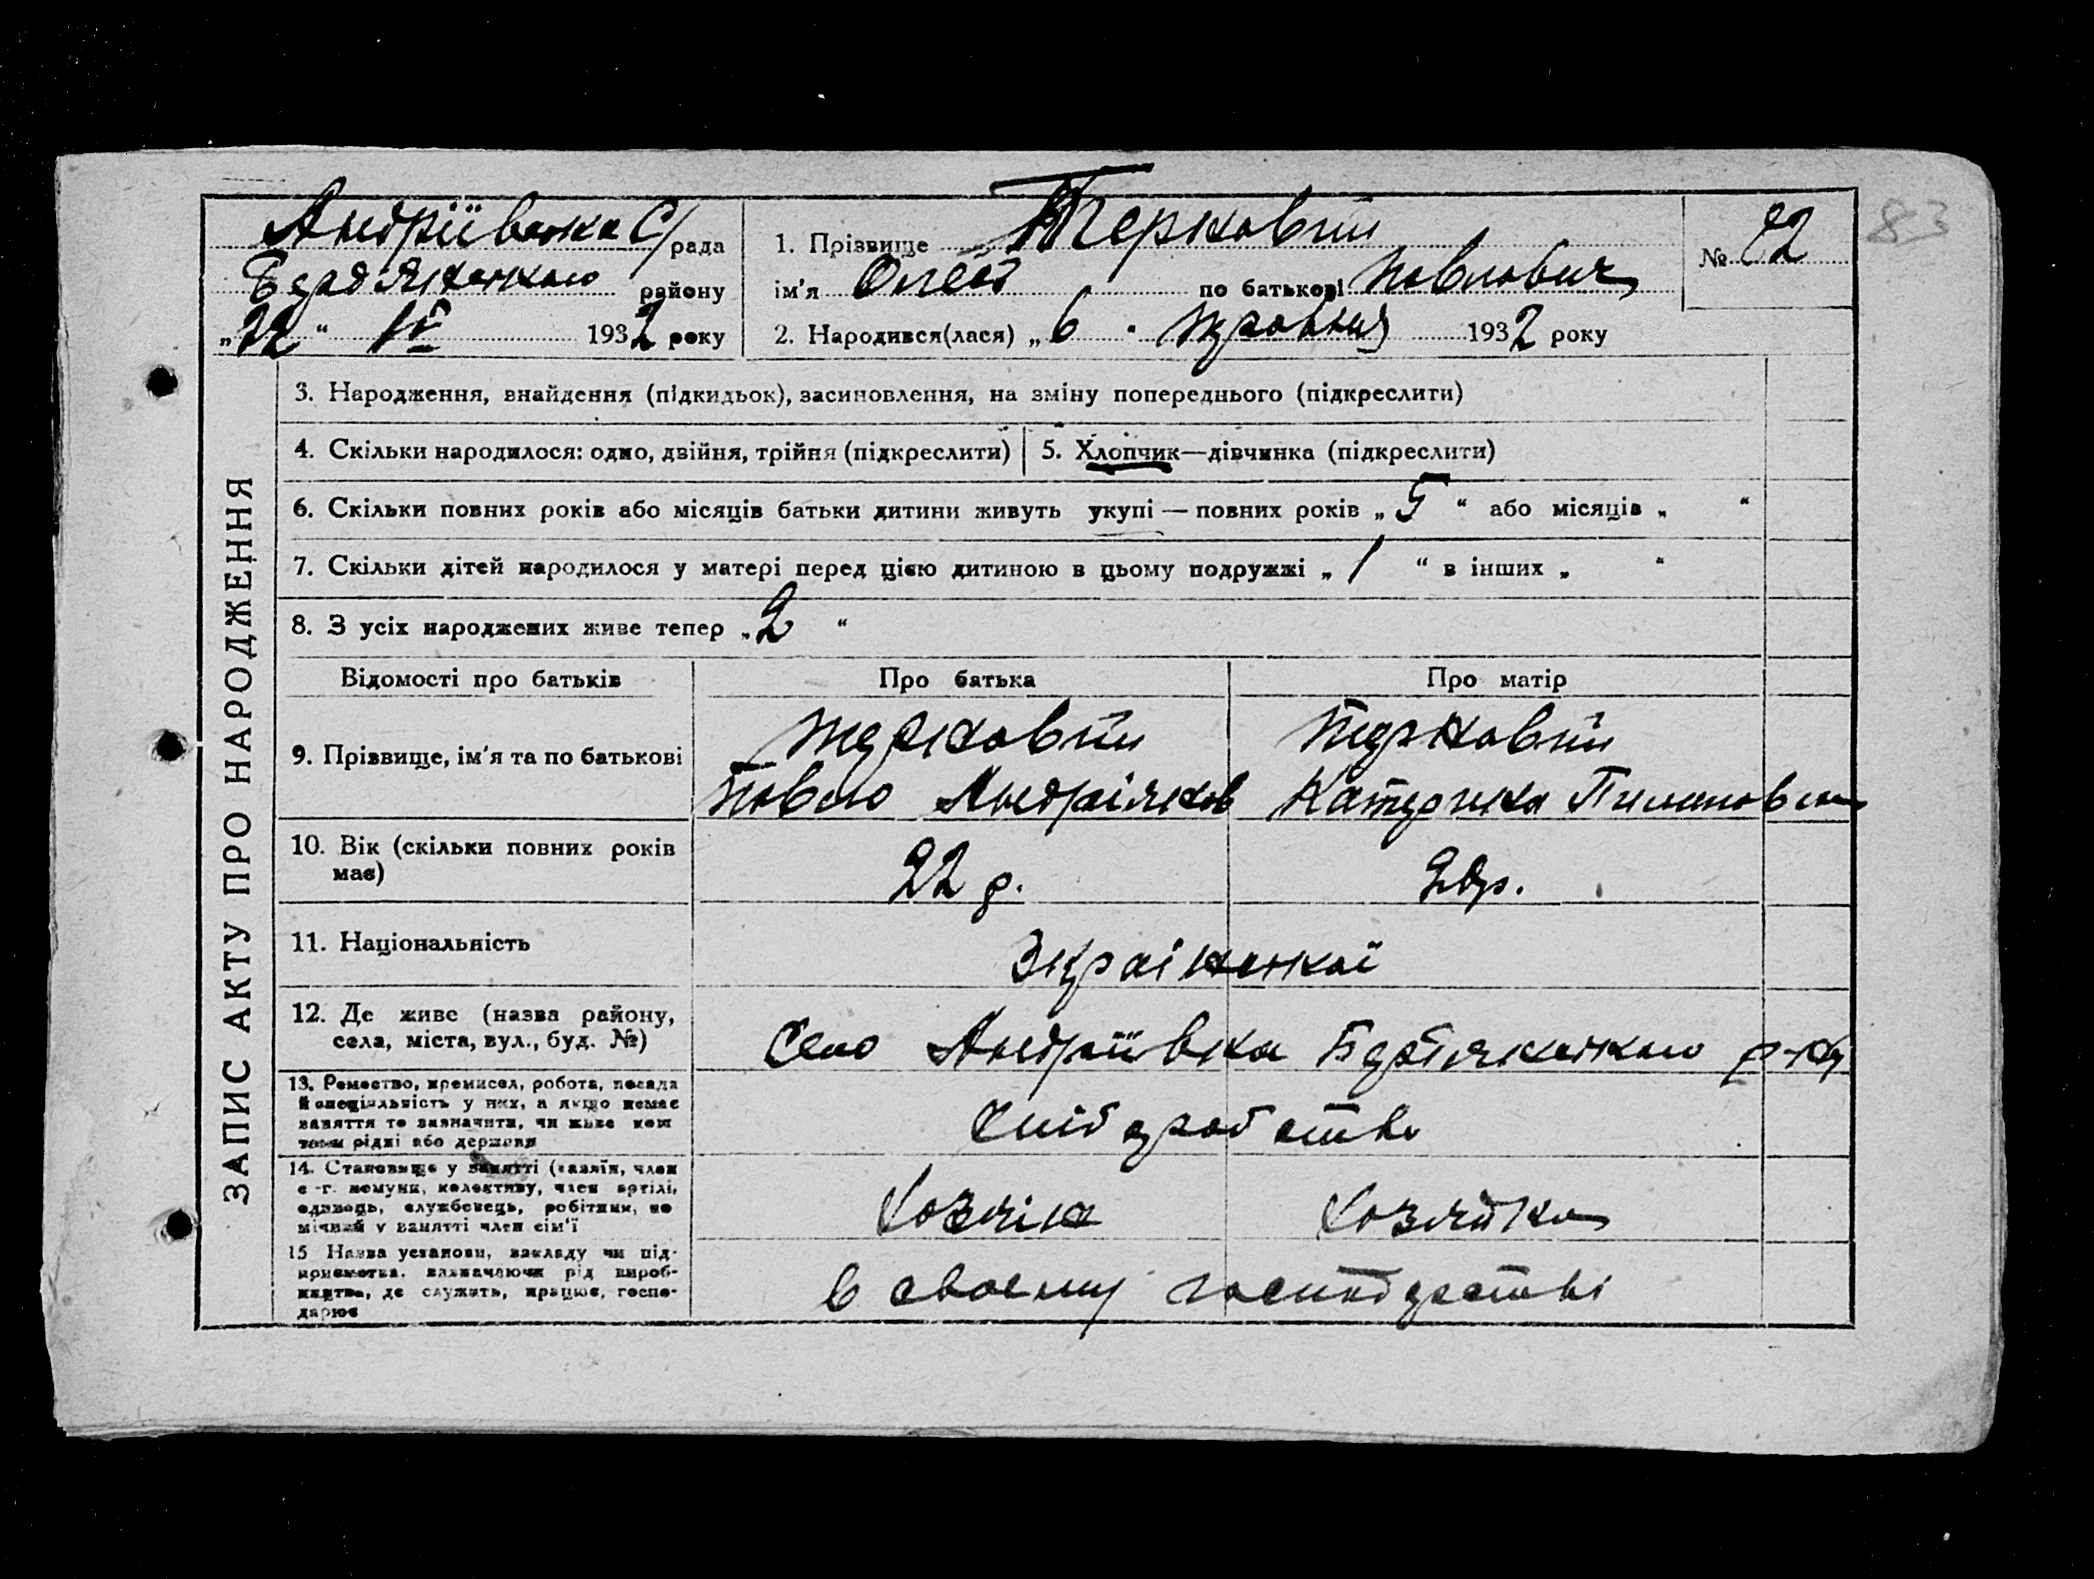 Андріївська С/рада
Бердянського району
„22“ IV 1932 року
1. Прізвище Терновий
ім'я Олекс по батькові Павлович
2. Народився(лася) „6“ травня 1932 року
№ 82
83
ЗАПИС АКТУ ПРО НАРОДЖЕННЯ
3. Народження, знайдення (підкидьок), засиновлення, на зміну попереднього (підкреслити)
4. Скільки народилося: одно, двійня, трійня (підкреслити)
5. Хлопчик—дівчинка (підкреслити)
6. Скільки повних років або місяців батьки дитини живуть укупі — повних років „5“ або місяців „ “
7. Скільки дітей народилося у матері перед цією дитиною в цьому подружжі „1“ в інших „ “
8. З усіх народжених живе тепер „2“
Відомості про батьків
Про батька
Про матір
9. Прізвище, ім'я та по батькові
Терновий
Павло Андріянов
Терновий
Катерина Пилиповна
10. Вік (скільки повних років
має)
22 р.
11. Національність
Української
12. Де живе (назва району,
села, міста, вул., буд. №)
Село Андріївка Бердянського р-ну
13. Ремество, промисел, робота, посада
й спеціяльність у них, а якщо немає
заняття то зазначити, чи живе кош
том рідні або держави
хліборобство
14. Становище у занятті (хазяїн, член
с.-г. комуни, колективу, член артілі,
одинець, службовець, робітник, по
мічний у занятті член сім'ї
Хозяін
Хозяйка
15 Назва установи, закладу чи під-
приємства, зазначаючи рід вироб-
ництва, де служить, працює, госпо-
дарює
в своему господарстві